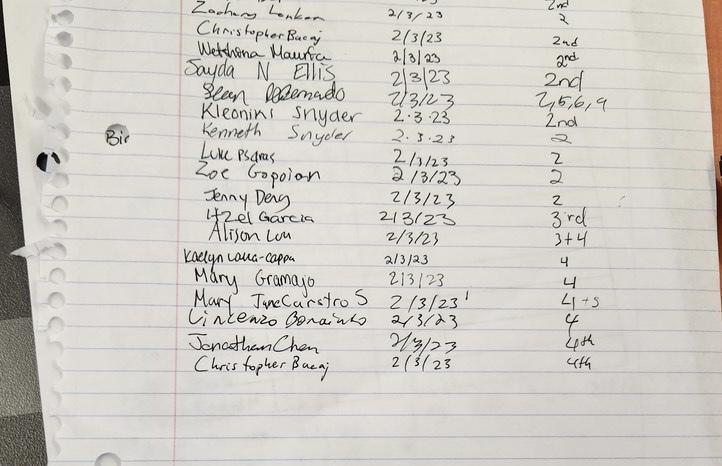 Zachary 2/3/23 2
Christopher Bucaj 2/3/23 2nd
Wetthona Maurfa 2/3/23 2nd
Sayda N Ellis 2/3/23 2nd
Sean 2/3/23 2,5,6,9
Kleonini Snyder 2.3.23 2nd
Kenneth Snyder 2.3.23 2
Bir
Luke Psaras 2/3/23 2
Zoe Gopoian 2/3/23 2
Jenny Deng 2/3/23 2
Itzel Garcia 2/3/23 3rd
Alison Lou 2/3/23 3+4
Kaelyn 2/3/23 4
Mary Gramajo 2/3/23 4
Mary Jane Castro S 2/3/23 4+5
Vincenzo 2/3/23 4
Jonathan Chen 2/3/23 4th
Christopher Bucaj 2/3/23 4th